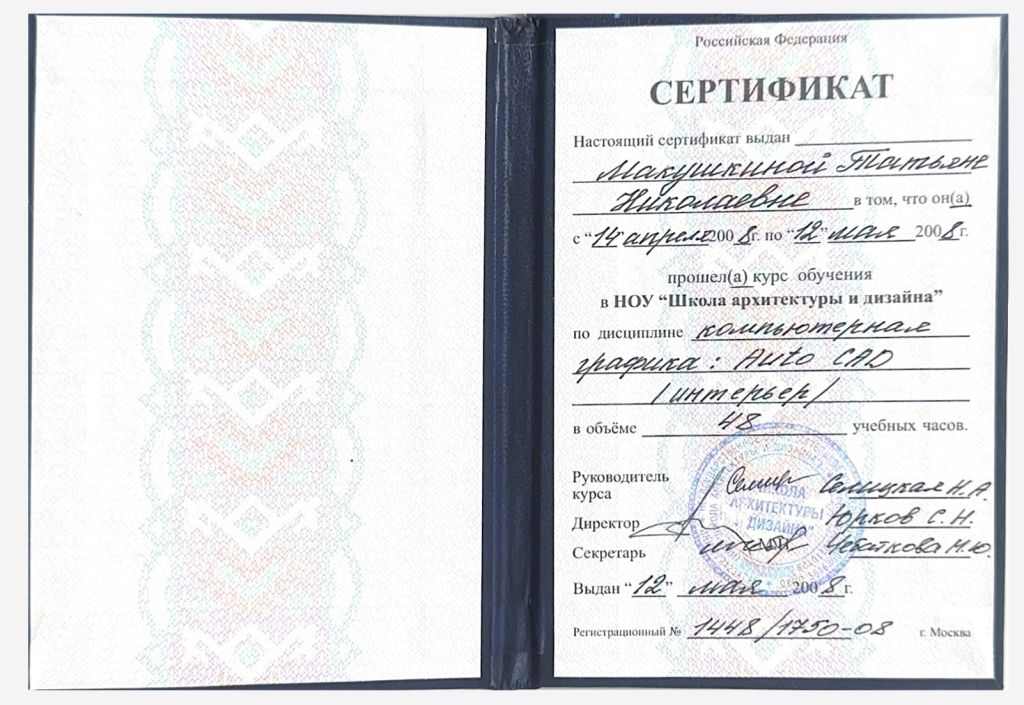 Российская Федерация
СЕРТИФИКАТ
Настоящий сертификат выдан
Макушкиной Татьяне
Николаевне в том, что он(а)
с “14” апреля 2008г. по “12” мая 2008г.
прошел(а) курс обучения
в НОУ “Школа архитектуры и дизайна”
по дисциплине компьютерная
графика: Auto CAD
/интерьер/
в объёме 48 учебных часов.
Руководитель
курса Селицкая Н.А.
ШКОЛА
АРХИТЕКТУРЫ
ДИЗАЙНА”
Директор Юрков С.Н.
Секретарь М.П. Чебаткова Н.Ю.
Выдан “12” мая 2008г.
Регистрационный № 1448/1750-08 г. Москва